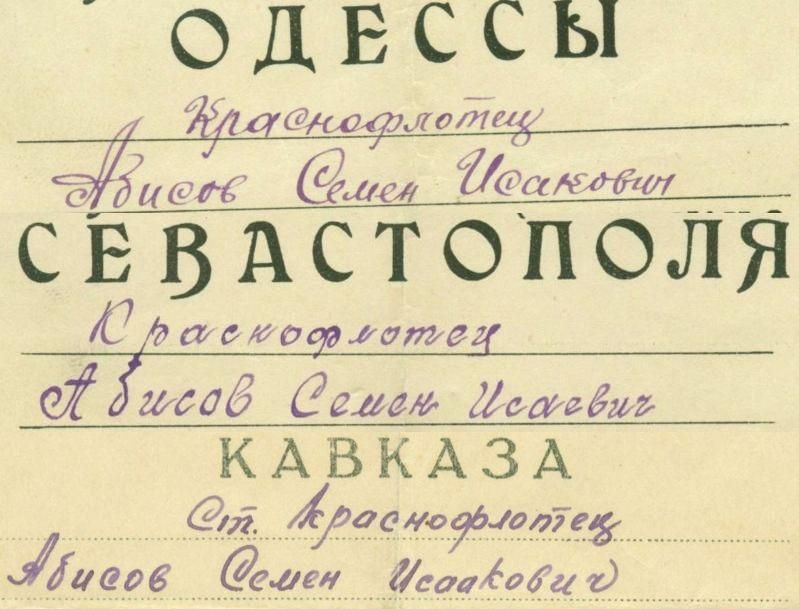 ОДЕССЫ
Краснофлотец
Абисов Семен Исакович
СЕВАСТОПОЛЯ
Краснофлотец
Абисов Семен Исаевич
КАВКАЗА
Ст. Краснофлотец
Абисов Семен Исаакович